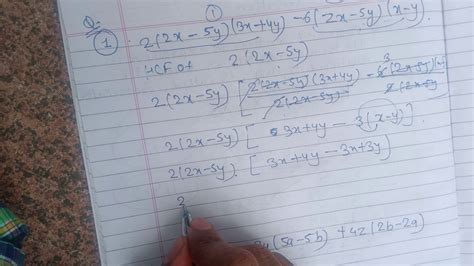 Q. (1)
(1) 2(2x - 5y)(3x+4y) - 6(2x-5y)(x-y)
HCF of 2(2x-5y)
2(2x-5y) [ 2(2x-5y)(3x+4y) / 2(2x-5y) - 6 3 (2x-5y) / 2(2x-5y)
2(2x-5y) [ 3x+4y - 3(x-y)]
2(2x-5y). [ 3x+4y - 3x+3y)
2
(5a-5b) + 4z(2b-2a)